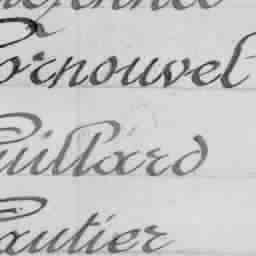 Cornouvel
Guillard
Gautier